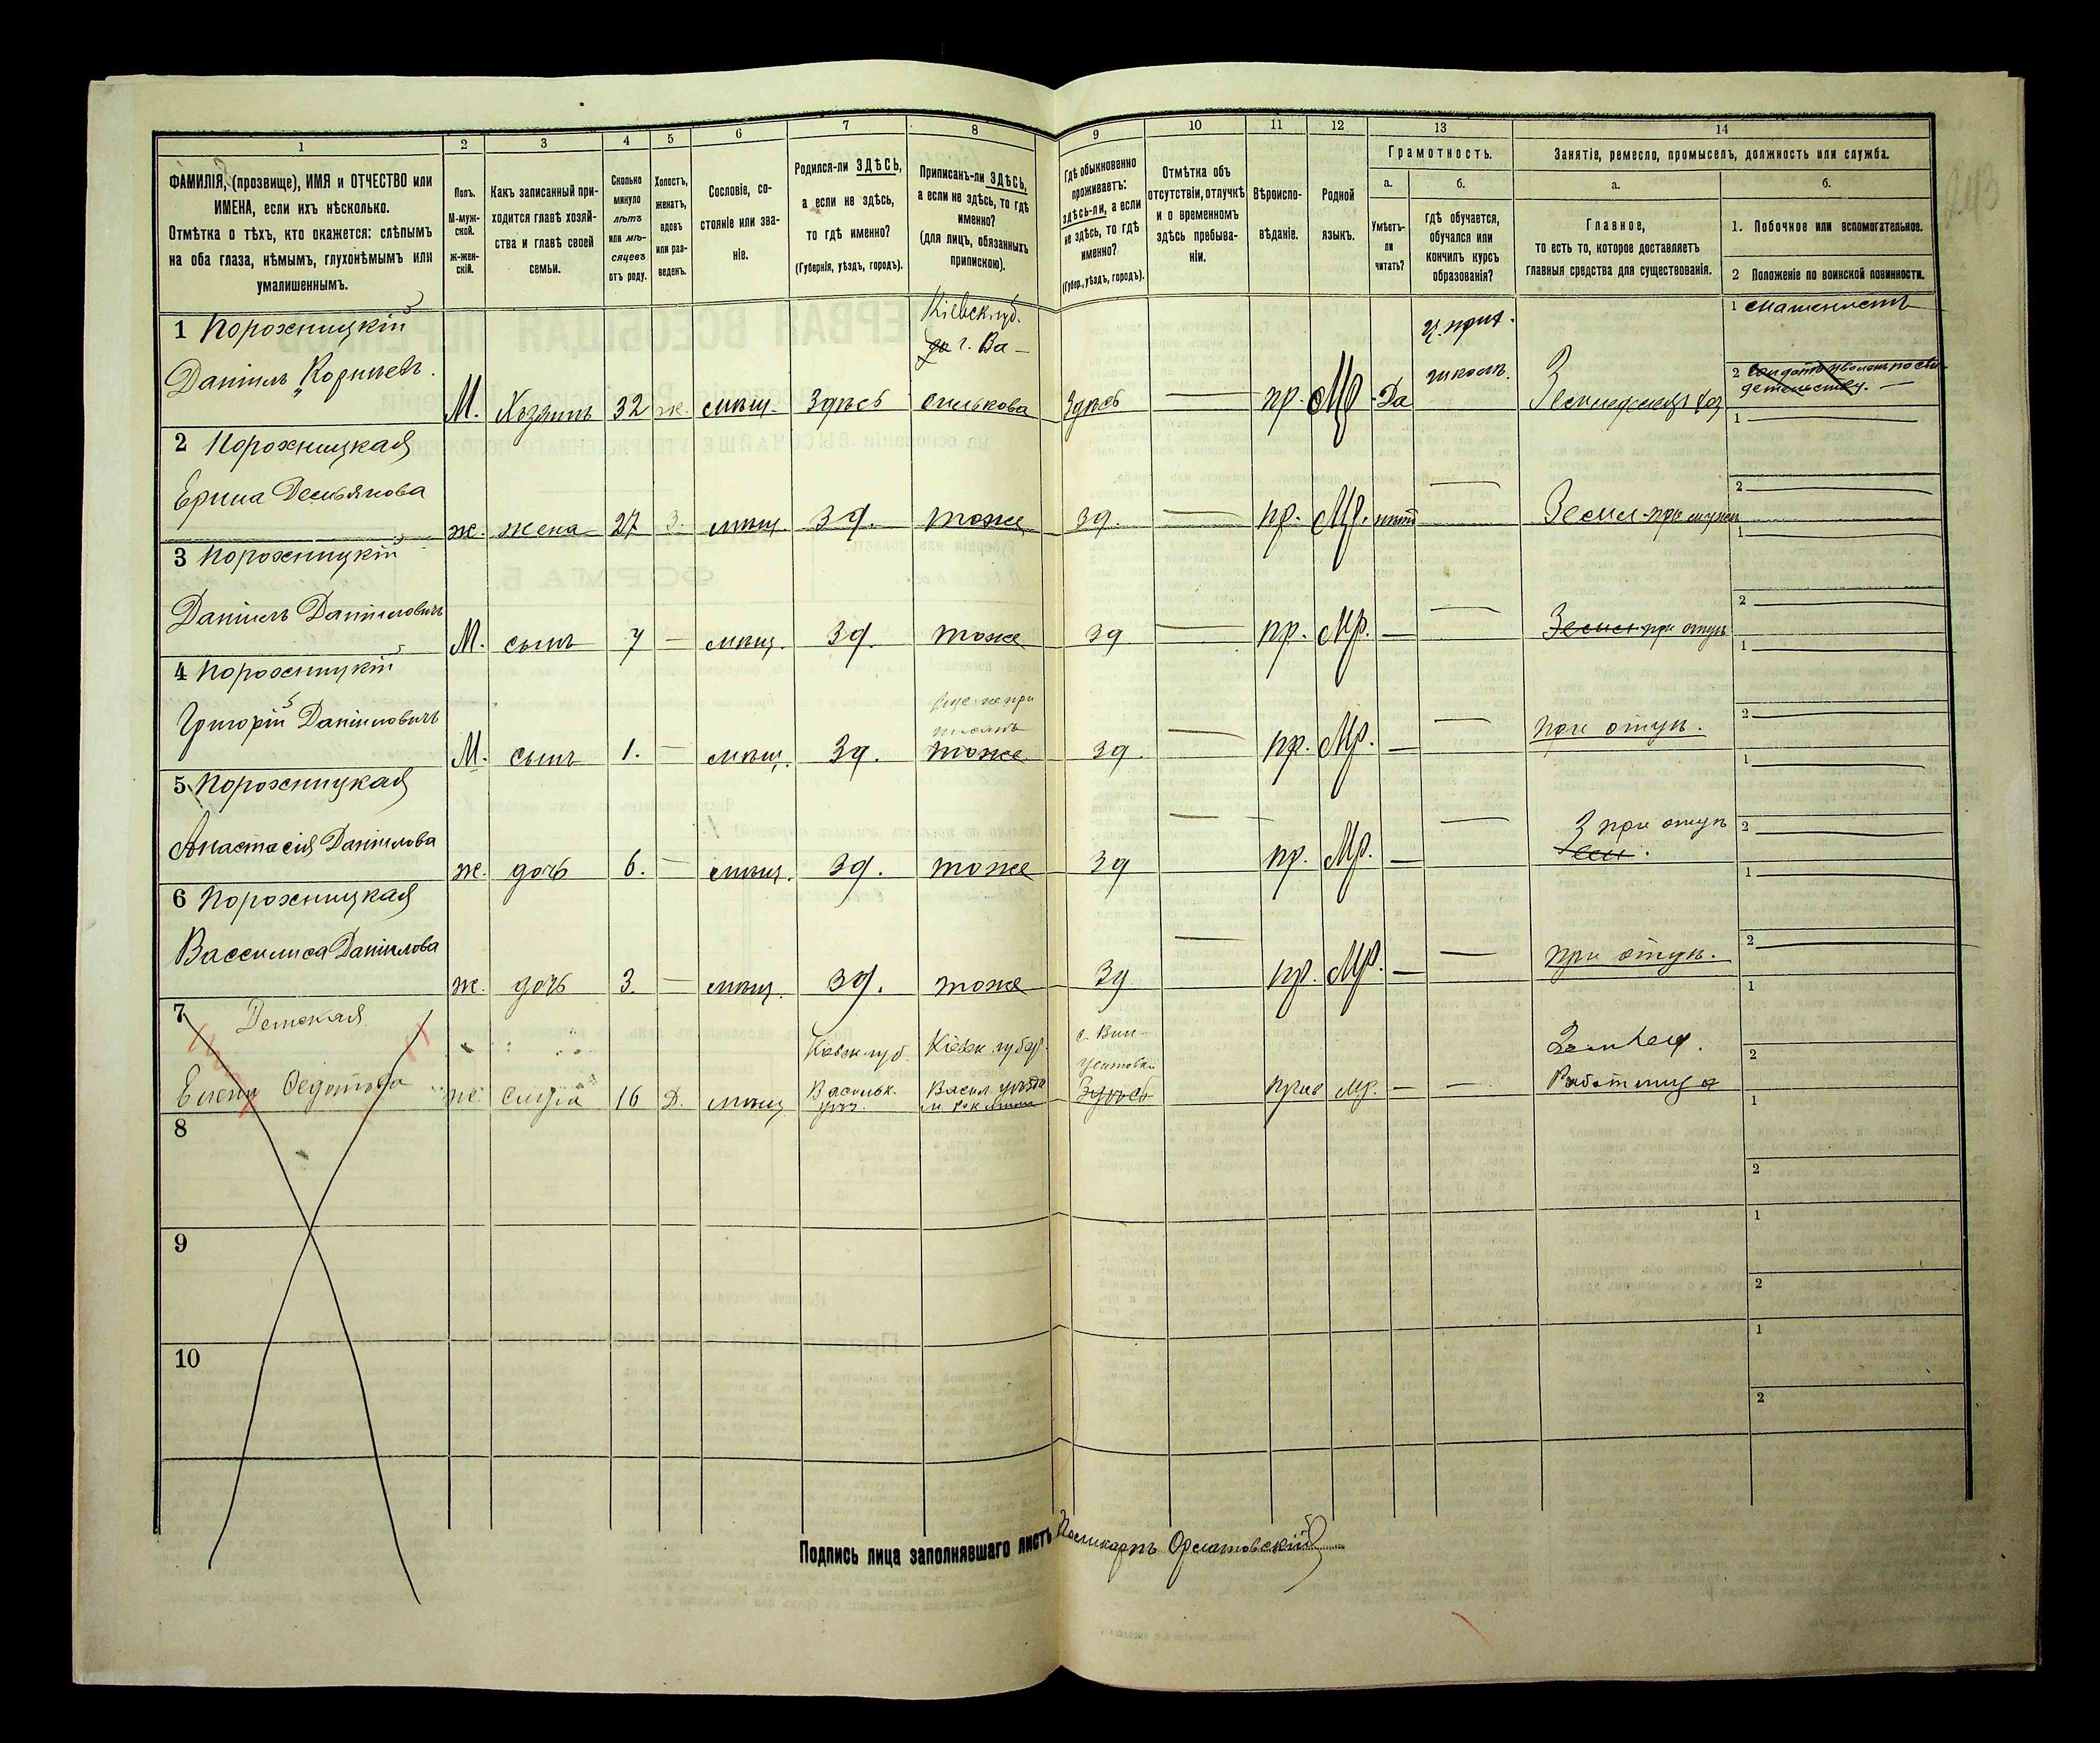 1 2 3 4 5 6 7 8 9 10 11 12 13 14
ФАМИЛІЯ, (прозвище), ИМЯ и ОТЧЕСТВО или
ИМЕНА, если ихъ нѣсколько.
Отмѣтка о тѣхъ, кто окажется: слѣпымъ
на оба глаза, нѣмымъ, глухонѣмымъ или
умалишеннымъ.
Полъ.
М-муж-
ской.
ж-жен-
скій.
Какъ записанный при-
ходится главѣ хозяй-
ства и главѣ своей
семьи.
Сколько
минуло
лѣтъ
или мѣ-
сяцевъ
отъ роду.
Холостъ,
женатъ,
вдовъ
или раз-
веденъ.
Сословіе, со-
стояніе или зва-
ніе.
Родился-ли ЗДѢСЬ,
а если не здѣсь,
то гдѣ именно?
(Губернія, уѣздъ, городъ).
Приписанъ-ли ЗДѢСЬ,
а если не здѣсь, то гдѣ
именно?
(для лицъ, обязанныхъ
припискою).
Гдѣ обыкновенно
проживаетъ:
здѣсь-ли, а если
не здѣсь, то гдѣ
именно?
(Губер., уѣздъ, городъ).
Отмѣтка объ
отсутствіи, отлучкѣ
и о временномъ
здѣсь пребыва-
ніи.
Вѣроиспо-
вѣданіе.
Родной
языкъ.
Грамотность.
а.
Умѣетъ-
ли
читать?
б.
гдѣ обучается,
обучался или
кончилъ курсъ
образованія?
Занятіе, ремесло, промыселъ, должность или служба.
а.
Главное,
то есть то, которое доставляетъ
главныя средства для существованія.
б.
1. Побочное или вспомогательное.
2 Положеніе по воинской повинности.
1 Порохницкій
Даніилъ Корніевъ.
М. Хозяинъ 32 ж. мѣщ. Здѣсь
Кіевск. губ.
г. Ва-
силькова
Здѣсь — пр. Мр. Да
ц. прих.
школ.
1
2
2 Порохницкая
Ерина Демьянова
ж. жена 27 З. мѣщ. Зд. тоже зд. — пр. Мр. нѣтъ —
1 —
2 —
3 Порохницкій
Даніилъ Даніиловичъ
М. сынъ 7 — мѣщ. Зд. тоже зд — пр. Мр. — —
1 —
2 —
4 Порохницкій
Григорій Даніиловичъ
М. сынъ 1. — мѣщ. Зд.
еще не при
писанъ
тоже
зд — пр. Мр. — — при отцѣ.
1 —
2 —
5 Порохницкая
Анастасія Даніилова
ж. дочь 6. — мѣщ. зд. тоже зд — — пр. Мр. — — при отцѣ
1 —
2 —
6 Порохницкая
Вассилиса Даніилова
ж. дочь 3 — мѣщ. зд. тоже Зд — пр. Мр. — — при отцѣ.
1 —
2 —
7
Елена Федотова
ж. 16 Д. мѣщ
Кіевск губ.
Васильк.
Кіевск губер.
Васил. уѣзда
Здѣсь
прав Мр. — —
Работница
1
2
8
1
2
9
1
2
10
1
2
Подпись лица заполнявшаго листъ Поликарпъ